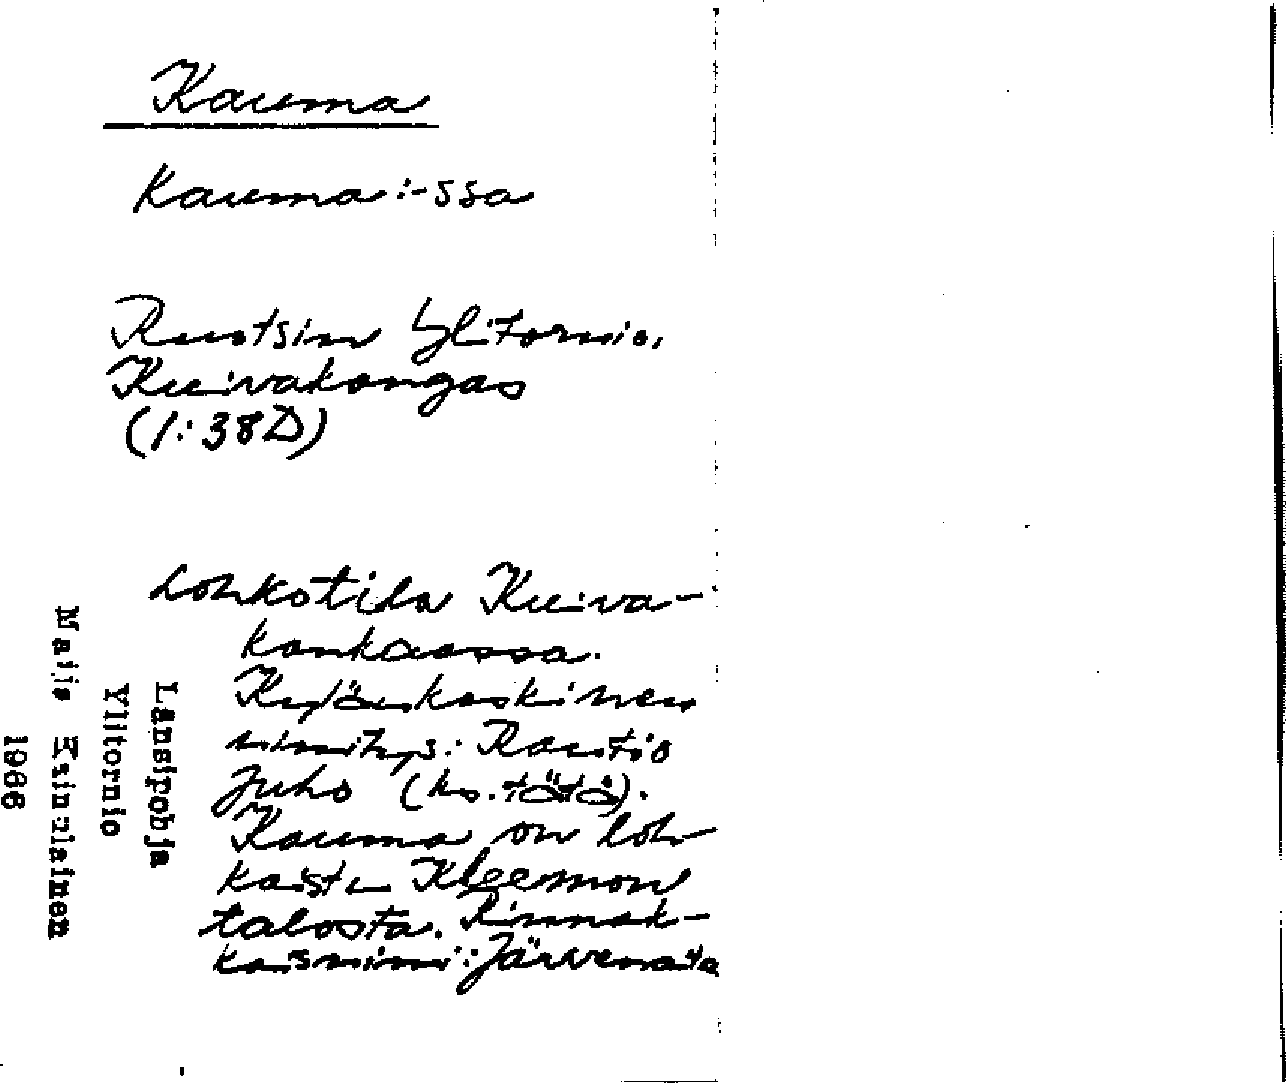 Kauma
Kauma:-ssa
Ruotsin Ylitornio,
Kuivakangas
(1:38D)
Lohkotila Kuiva-
kankaassa.
nimitys: Rautio
Juho (ks. tätä).
Kauma on loh-
kaistu Kleemon
talosta. Rinnak-
kaisnimi: Järvenpää
Länsipohja
Ylitornio
Maija
1966